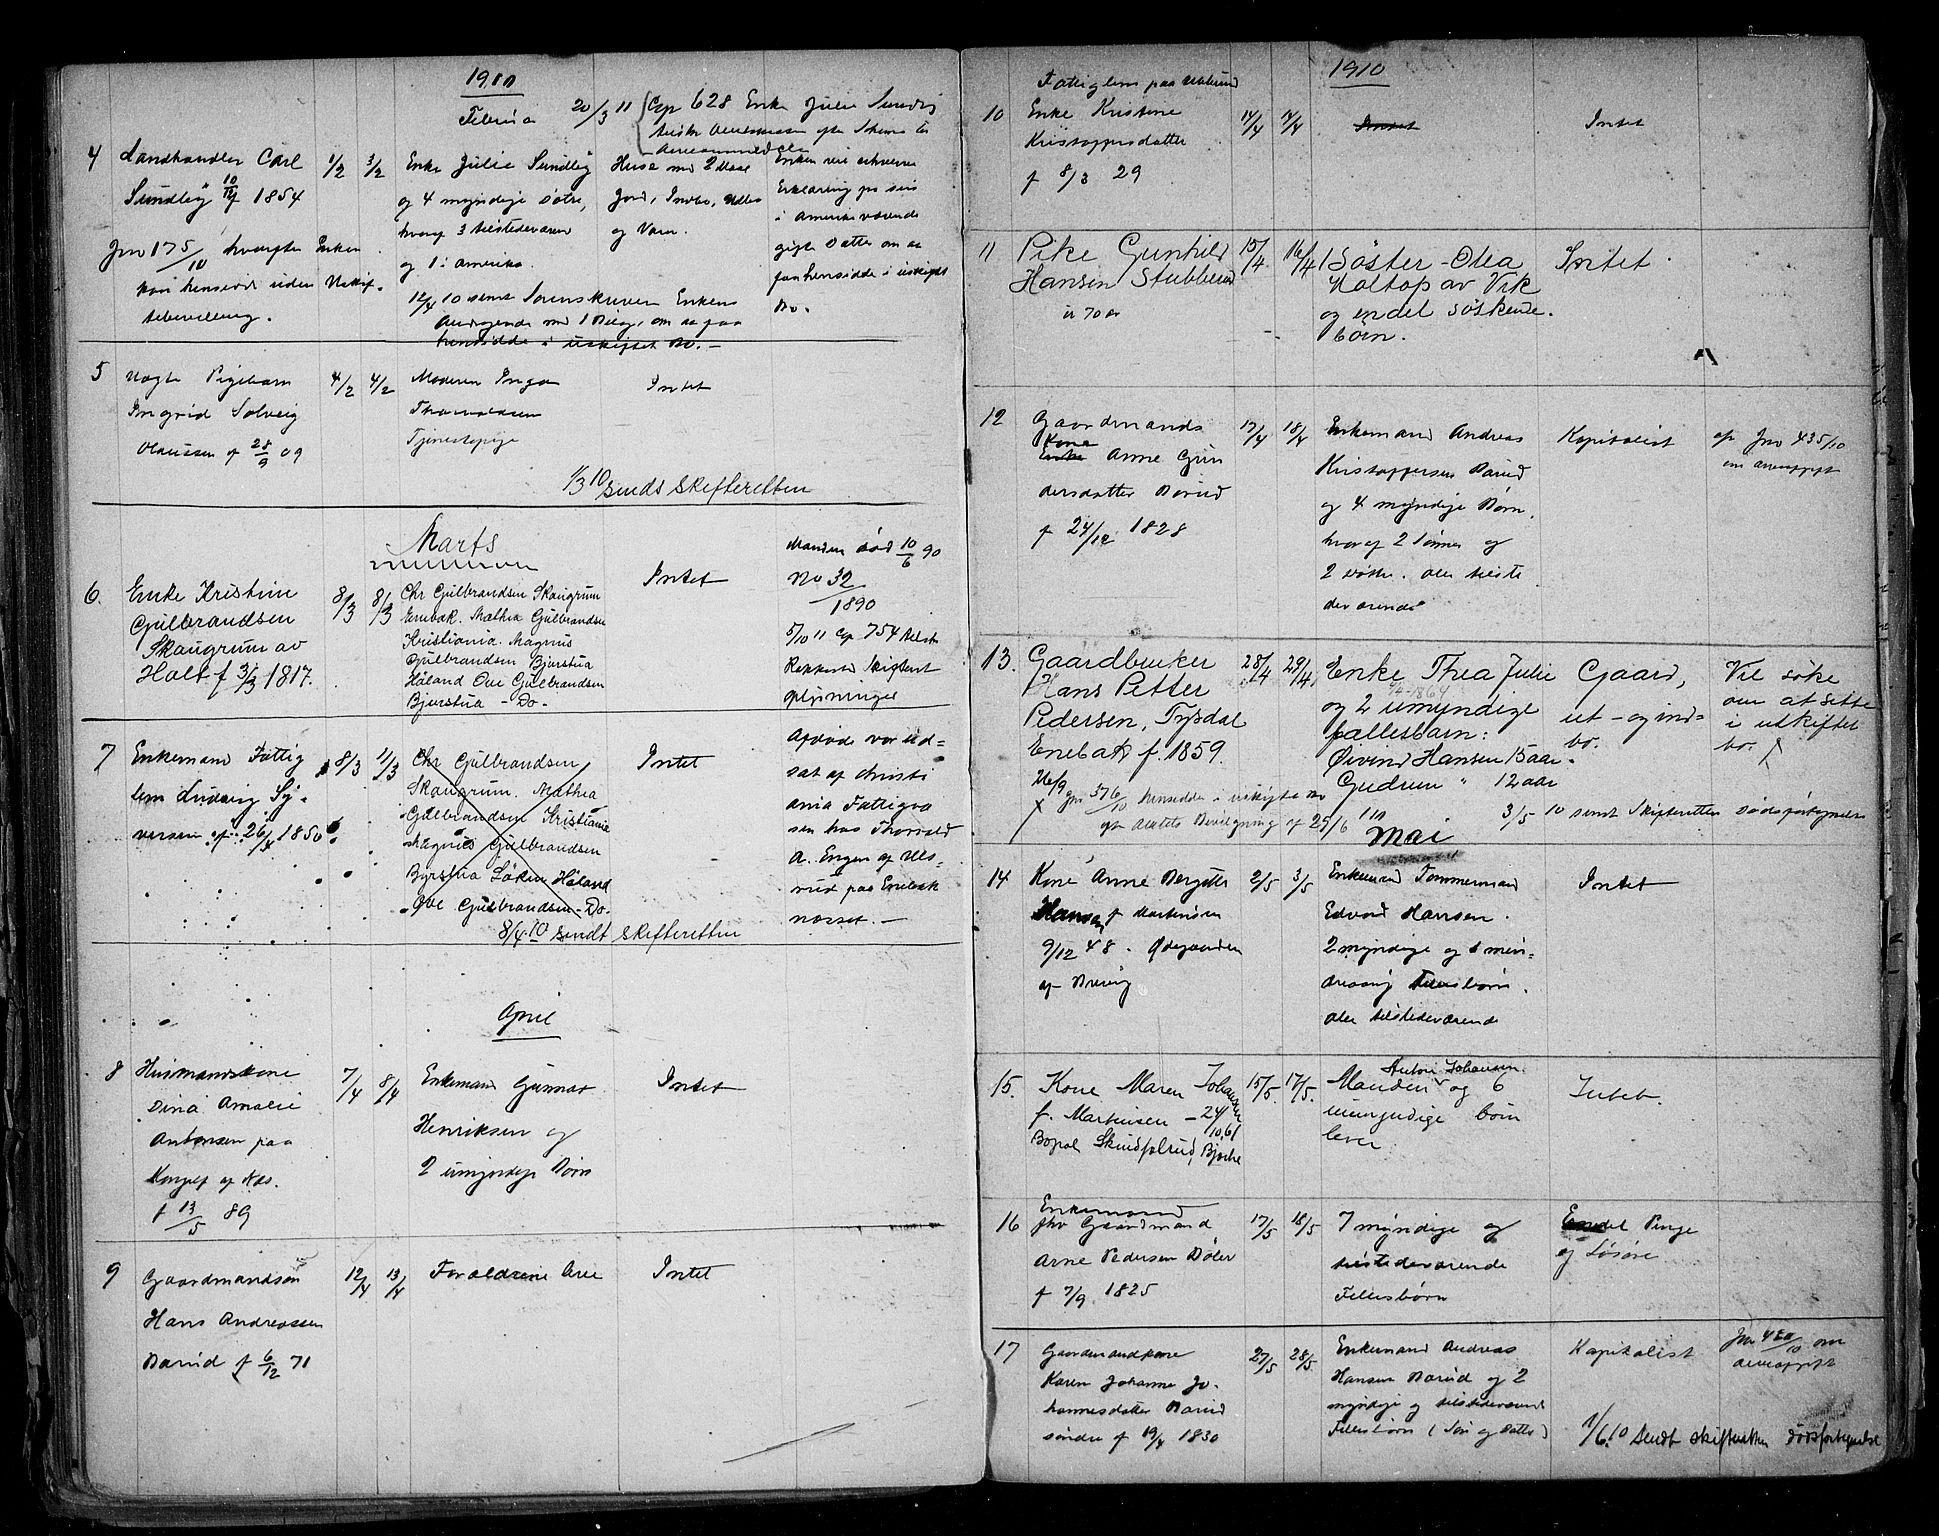 1910
Februar 20/3 11 Cop 628 Enke Julie Sundby
4 Landhandler Carl
Sundby f 1854
1/2 3/2
Enke Julie Sundby
og 4 myndige Døtre,
hvoraf 3 tilstedeværen
og 1 i Amerika.
Huse med 2 Maal
Jord, Indbo,
og Varer.
Enken vil erhverve
Erklæring fra sin
i Amerika værende
gifte Datter om at
faa hensidde i uskiftet
Bo.
Jnr 175/10 hvorefter Enken
kan hensidde uden
bevilling.
12/4 10 sendt Sorenskriveren Enkens
Andragende med 1 Bilag, om at faa
hensidde i uskiftet Bo. –
5 Uægte Pigebarn
Ingrid Solveig
Olaussen f 28/9 09
4/2 4/2
Moderen Inga
Thorvaldsen
Tjenestepige
Intet
1/3 10 sendt Skifteretten
Marts
6. Enke Kristine
Gulbrandsen
Skaugrum av
Holt f 3/3 1817.
8/3 8/3
Chr Gulbrandsen Skaugrum
Enebak. Mathea Gulbrandsen
Kristiania. Magnus
Gulbrandsen Bjerstua
Høland Ove Gulbrandsen
Bjerstua – Do –
Intet
Manden død 10/6 90
No 32/1890
5/10 11 Cop 754 tilst
Skifteret
oplysninger
7 Enkemand Fattig
lem Ludvig Sy-
versen f. 26/4 1850.
8/3 11/3
Chr Gulbrandsen
Skaugrum. Mathea
Gulbrandsen Kristiania
Magnus Gulbrandsen
Bjerstua Løken Høland
Ove Gulbrandsen – Do –
Intet
Afdøde var ud=
sat af Christi
ania Fattigvæ
sen hos Thorvald
A. Engen af Uls-
rud paa Enebak
næsset. –
8/4 10 sendt skifteretten
April
8 Husmandskone
Dina Amalie
Antonsen paa
af Næs.
f 13/5 89
7/4 8/4
Enkemand Gunnar
Henriksen og
2 umyndige Børn
Intet
9 Gaardmandsøn
Hans Andreassen
Barud f 6/12 71
12/4 13/4
Forældrene Arve
Intet
1910
Fattiglem paa
10 Enke Kristine
Kristoffersdatter
f 8/3 29
14/4
Intet
Intet
11 Pike Gunhild
Hansen Stubberud
ca 70 år
15/4 16/4
1 Søster – Olea
Holtop av Vik
og endel søskende.
børn.
Intet.
12 Gaardmands
Kone
Enke Anne Gun
dersdatter Barud
f 24/12 1828
17/4 18/4
Enkemand Andreas
Kristoffersen Barud
og 4 myndige Børn.
hvoraf 2 Sønner og
2 Døtre. Alle tilste
deværende
Kapitalist
Jnr 435/10
om arveafgift
13. Gaardbruker
Hans Petter
Pedersen, Tysdal
Enebak f. 1859.
28/4 29/4
Enke Thea Julie
1864
og 2 umyndige
fællesbarn:
Øivind Hansen 15 aar.
Gudrun " 12 aar
Gaard,
ut – og ind-
bo.
Vil søke
om at sitte
i uskiftet
bo.
Jnr 576/10 hensidde i uskiftet Bo
Bevilgning af 25/6
3/5 10 sendt Skifteretten dødsfortegnelse
Mai
14 Kone Anne Bergitte
Hansen f Martinsen
9/12 48. Ødegaarden
af
2/5 3/5
Enkemand Tømmermand
Edvard Hansen.
2 myndige og 1 min-
dreaarig Fellesbørn.
Alle tilstedeværende
Intet
15. Kone Maren Johansen
f. Martinsen – 24/10, 61
Bopæl
15/5. 17/5.
Anton Johansen
Manden og 6
umyndige børn
lever.
Intet.
16 Enkemand
fhv Gaardmand
Arne Pedersen Døler
f 7/9 1825
17/5 18/5
7 myndige og
tilstedeværende
Fellesbørn
Endel Penge
og Løsøre
17 Gaardmandkone
Karen Johanne Jo-
hannesdatter Barud
søndre f 19/4 1830
27/5 28/5
Enkemand Andreas
Hansen Barud og 2
myndige og tilstedeværende
Fellesbørn (Søn og Datter)
Kapitalist
Jnr 480/10 om
arveafgift
1/6.10 Sendt skifteretten dødsfortegnelse